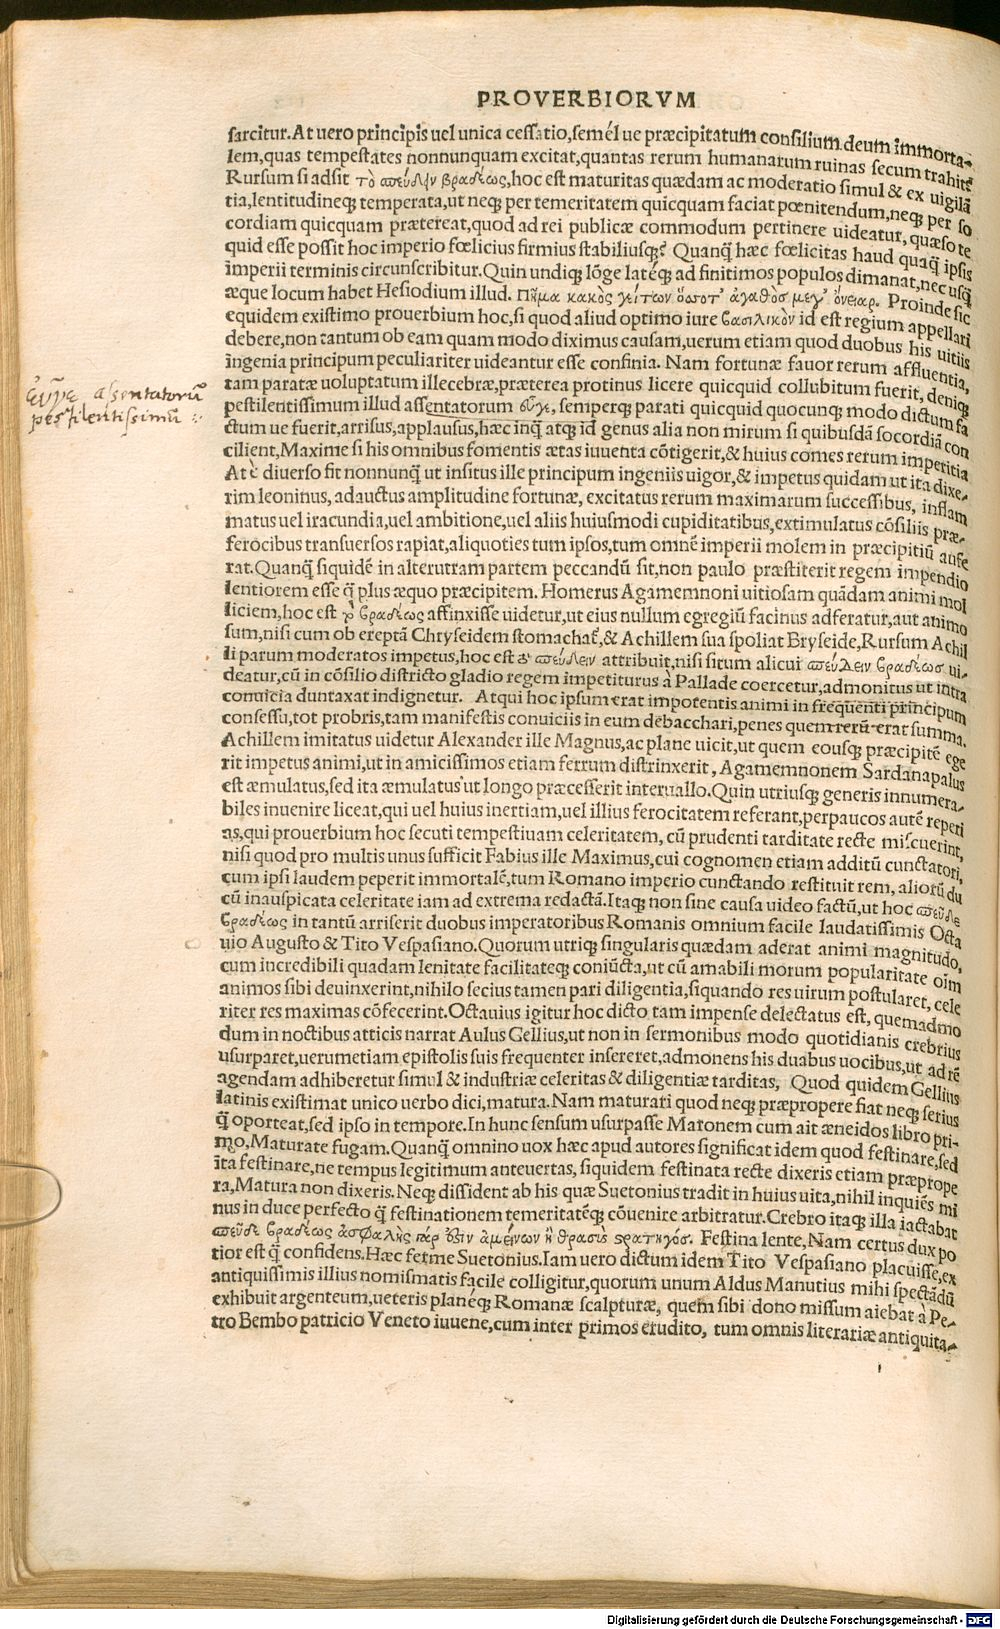 PROVERBIORVM
sarcitur.At uero principis uel unica cessatio,semél ue præcipitatum consilium deum immorta-
lem,quas tempestates nonnunquam excitat,quantas rerum humanarum ruinas secum trahit?
Rursum si adsit τὸ σπεύδειν βραδέως,hoc est maturitas quædam ac moderatio simul & ex uigilã
tia,lentitudineq; temperata,ut neq; per temeritatem quicquam faciat pœnitendum,neq; per so
cordiam quicquam prætereat,quod ad rei publicæ commodum pertinere uideatur,quæso te
quid esse possit hoc imperio fœlicius firmius stabiliusq;? Quanq̃ hæc fœlicitas haud quaq̃ ipsis
imperii terminis circunscribitur.Quin undiq; lõge latéq; ad finitimos populos dimanat,nec usq̃
æque locum habet Hesiodium illud. Πῆμα κακὸς γείτων ὅσσοτ' ἀγαθὸσ μεγ' ὄνειαρ. Proinde sic
equidem existimo prouerbium hoc,si quod aliud optimo iure βασιλικὸν id est regium appellari
debere,non tantum ob eam quam modo diximus causam,uerum etiam quod duobus his uitiis
ingenia principum peculiariter uideantur esse confinia. Nam fortunæ fauor rerum affluentia,
tam paratæ uoluptatum illecebræ,præterea protinus licere quicquid collubitum fuerit, deniq;
ἐύγε assentatorũ
pestilentissimũ
pestilentissimum illud assentatorum εὖγε, semperq; parati quicquid quocunq; modo dictum fa
ctum ue fuerit,arrisus,applausus,hæc inq̃ atq; id genus alia non mirum si quibusdã socordiã con
cilient,Maxime si his omnibus fomentis ætas iuuenta cõtigerit,& huius comes rerum imperitia
At è diuerso fit nonnunq̃ ut insitus ille principum ingeniis uigor,& impetus quidam ut ita dixe-
rim leoninus, adauctus amplitudine fortunæ, excitatus rerum maximarum successibus, inflam
matus uel iracundia,uel ambitione,uel aliis huiusmodi cupiditatibus,extimulatus cõsiliis præ-
ferocibus transuersos rapiat,aliquoties tum ipsos,tum omnẽ imperii molem in præcipitiũ aufe
rat.Quanq̃ siquidẽ in alterutram partem peccandũ sit,non paulo præstiterit regem impendio
lentiorem esse q̃ plus æquo præcipitem. Homerus Agamemnoni uitiosam quãdam animi mol
liciem,hoc est τὸ βραδέως affinxisse uidetur,ut eius nullum egregiũ facinus adferatur,aut animo
sum,nisi cum ob ereptã Chryseidem stomachat̃,& Achillem sua spoliat Bryseide,Rursum Achil
li parum moderatos impetus,hoc est τὸ σπεύδειν attribuit,nisi situm alicui σπεύδειν βραδέωσ ui-
deatur,cũ in cõsilio districto gladio regem impetiturus à Pallade coercetur,admonitus ut intra
conuicia duntaxat indignetur. Atqui hoc ipsum erat impotentis animi in frequenti principum
consessu,tot probris,tam manifestis conuiciis in eum debacchari,penes quem rerũ erat summa.
Achillem imitatus uidetur Alexander ille Magnus,ac plane uicit,ut quem eousq; præcipitẽ ege
rit impetus animi,ut in amicissimos etiam ferrum distrinxerit, Agamemnonem Sardanapalus
est æmulatus,sed ita æmulatus ut longo præcesserit interuallo.Quin utriusq; generis innumera-
biles inuenire liceat,qui uel huius inertiam,uel illius ferocitatem referant,perpaucos autẽ reperi
as,qui prouerbium hoc secuti tempestiuam celeritatem, cũ prudenti tarditate recte miscuerint,
nisi quod pro multis unus sufficit Fabius ille Maximus,cui cognomen etiam additũ cunctatori,
cum ipsi laudem peperit immortalẽ,tum Romano imperio cunctando restituit rem, aliorũ du
cũ inauspicata celeritate iam ad extrema redactã.Itaq; non sine causa uideo factũ,ut hoc σπεῦδε
βραδέως in tantũ arriserit duobus imperatoribus Romanis omnium facile laudatissimis Octa
uio Augusto & Tito Vespasiano.Quorum utriq; singularis quædam aderat animi magnitudo,
cum incredibili quadam lenitate facilitateq; coniũcta,ut cũ amabili morum popularitate oĩm
animos sibi deuinxerint,nihilo secius tamen pari diligentia,siquando res uirum postularet, cele
riter res maximas cõfecerint.Octauius igitur hoc dicto tam impense delectatus est, quemadmo
dum in noctibus atticis narrat Aulus Gellius,ut non in sermonibus modo quotidianis crebrius
usurparet,uerumetiam epistolis suis frequenter insereret,admonens his duabus uocibus,ut ad rẽ
agendam adhiberetur simul & industriæ celeritas & diligentiæ tarditas, Quod quidem Gellius
latinis existimat unico uerbo dici,matura. Nam maturati quod neq; præpropere fiat neq; serius
q̃ oporteat,sed ipso in tempore.In hunc sensum usurpasse Maronem cum ait æneidos libro pri-
mo.Maturate fugam.Quanq̃ omnino uox hæc apud autores significat idem quod festinare,sed
ita festinare,ne tempus legitimum anteuertas, siquidem festinata recte dixeris etiam præprope
ra,Matura non dixeris.Neq; dissident ab his quæ Suetonius tradit in huius uita,nihil inquiẽs mi
nus in duce perfecto q̃ festinationem temeritatẽq; cõuenire arbitratur.Crebro itaq; illa iactabat
σπεῦδε βραδέως ἀσφαλὴς γάρ ἐστιν ἀμείνων ἢ θρασὺς στρατηγόσ. Festina lente, Nam certus dux po
tior est q̃ confidens.Hæc ferme Suetonius.Iam uero dictum idem Tito Vespasiano placuisse,ex
antiquissimis illius nomismatis facile colligitur,quorum unum Aldus Manutius mihi spectãdũ
exhibuit argenteum,ueteris planéq; Romanæ scalpturæ, quem sibi dono missum aiebat à Pe-
tro Bembo patricio Veneto iuuene,cum inter primos erudito, tum omnis literariæ antiquita-
Digitalisierung gefördert durch die Deutsche Forschungsgemeinschaft - DFG